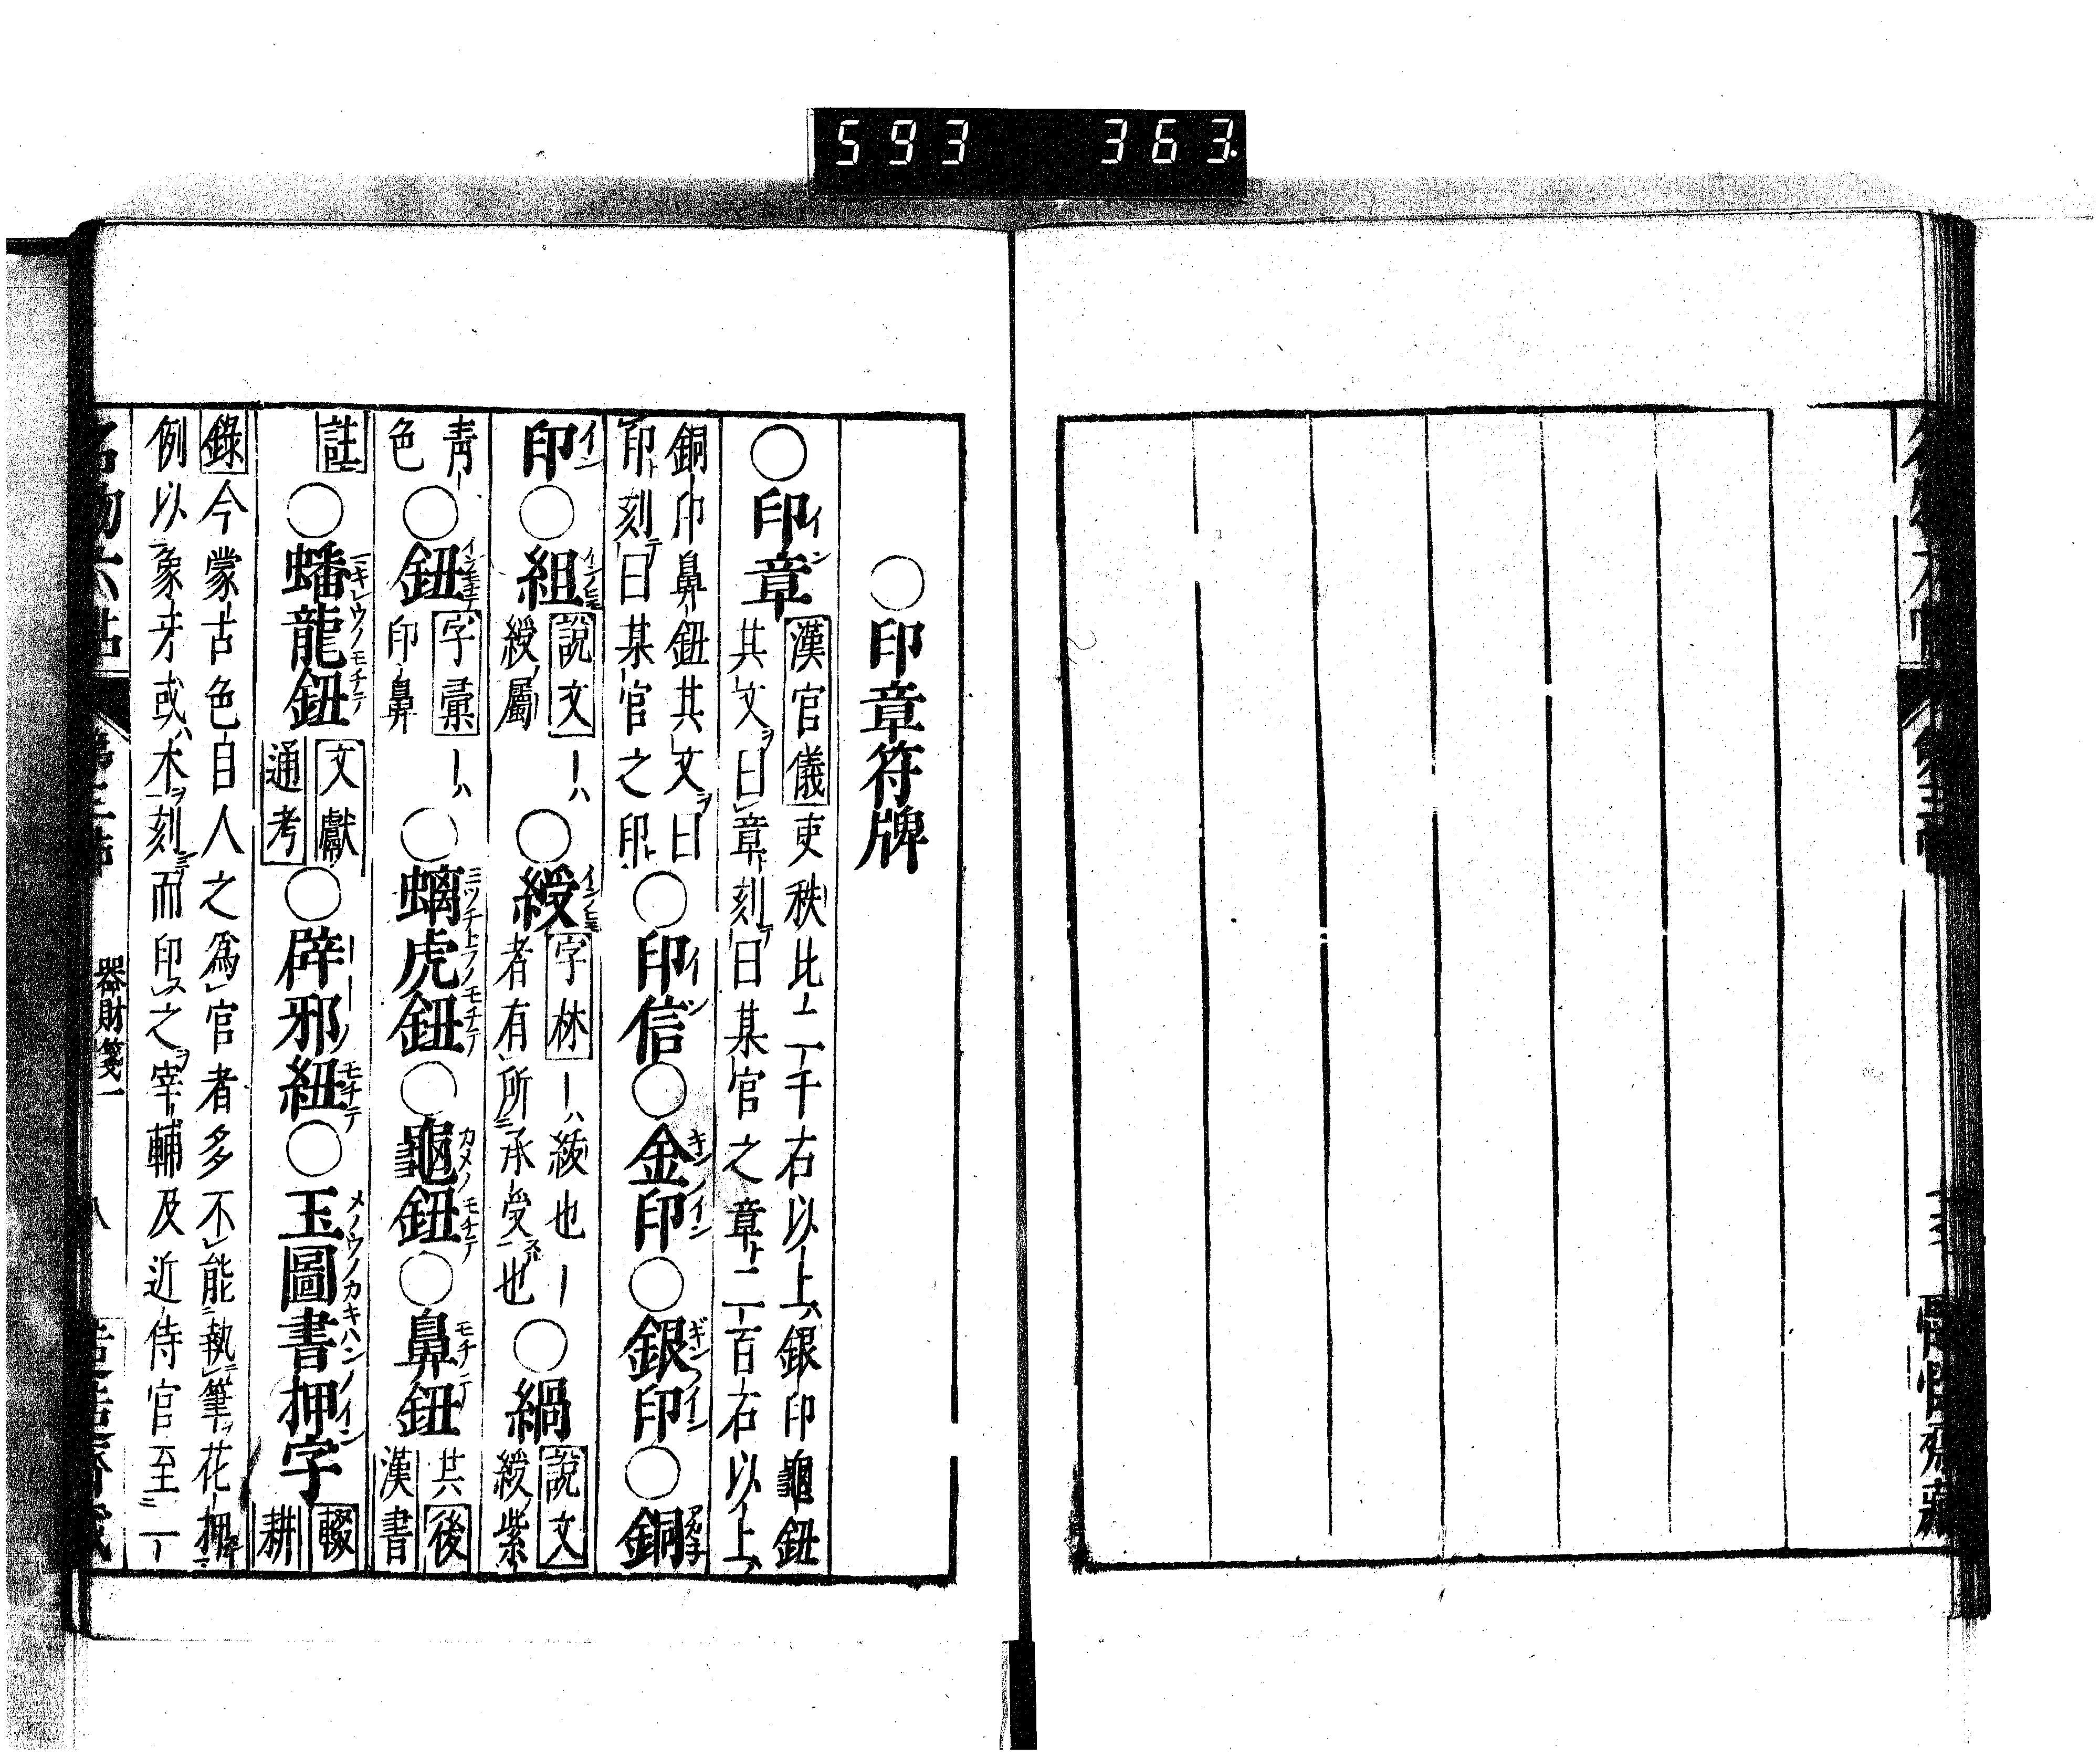 593 363
○印章符牌
○印章漢官儀吏秩比二千石以上銀印龜鈕
其文曰章刻曰某官之章二百石以上
銅印鼻鈕其文曰
印刻曰某官之印
○印信○金印○銀印○銅
印○組說文一ハ
綬屬
○綬字林一ハ紱也一
者有所承受也
○緺說文
綬紫
青
色
○鈕字彙一ハ
印鼻
○螭虎鈕○龜鈕○鼻鈕共後
漢書
註
○蟠龍鈕文獻
通考
○辟邪紐○玉圖書押字輟
耕
錄今蒙古色目人之爲官者多不能執筆花押
例以象牙或木刻而印之宰輔及近侍官至一
器財箋一